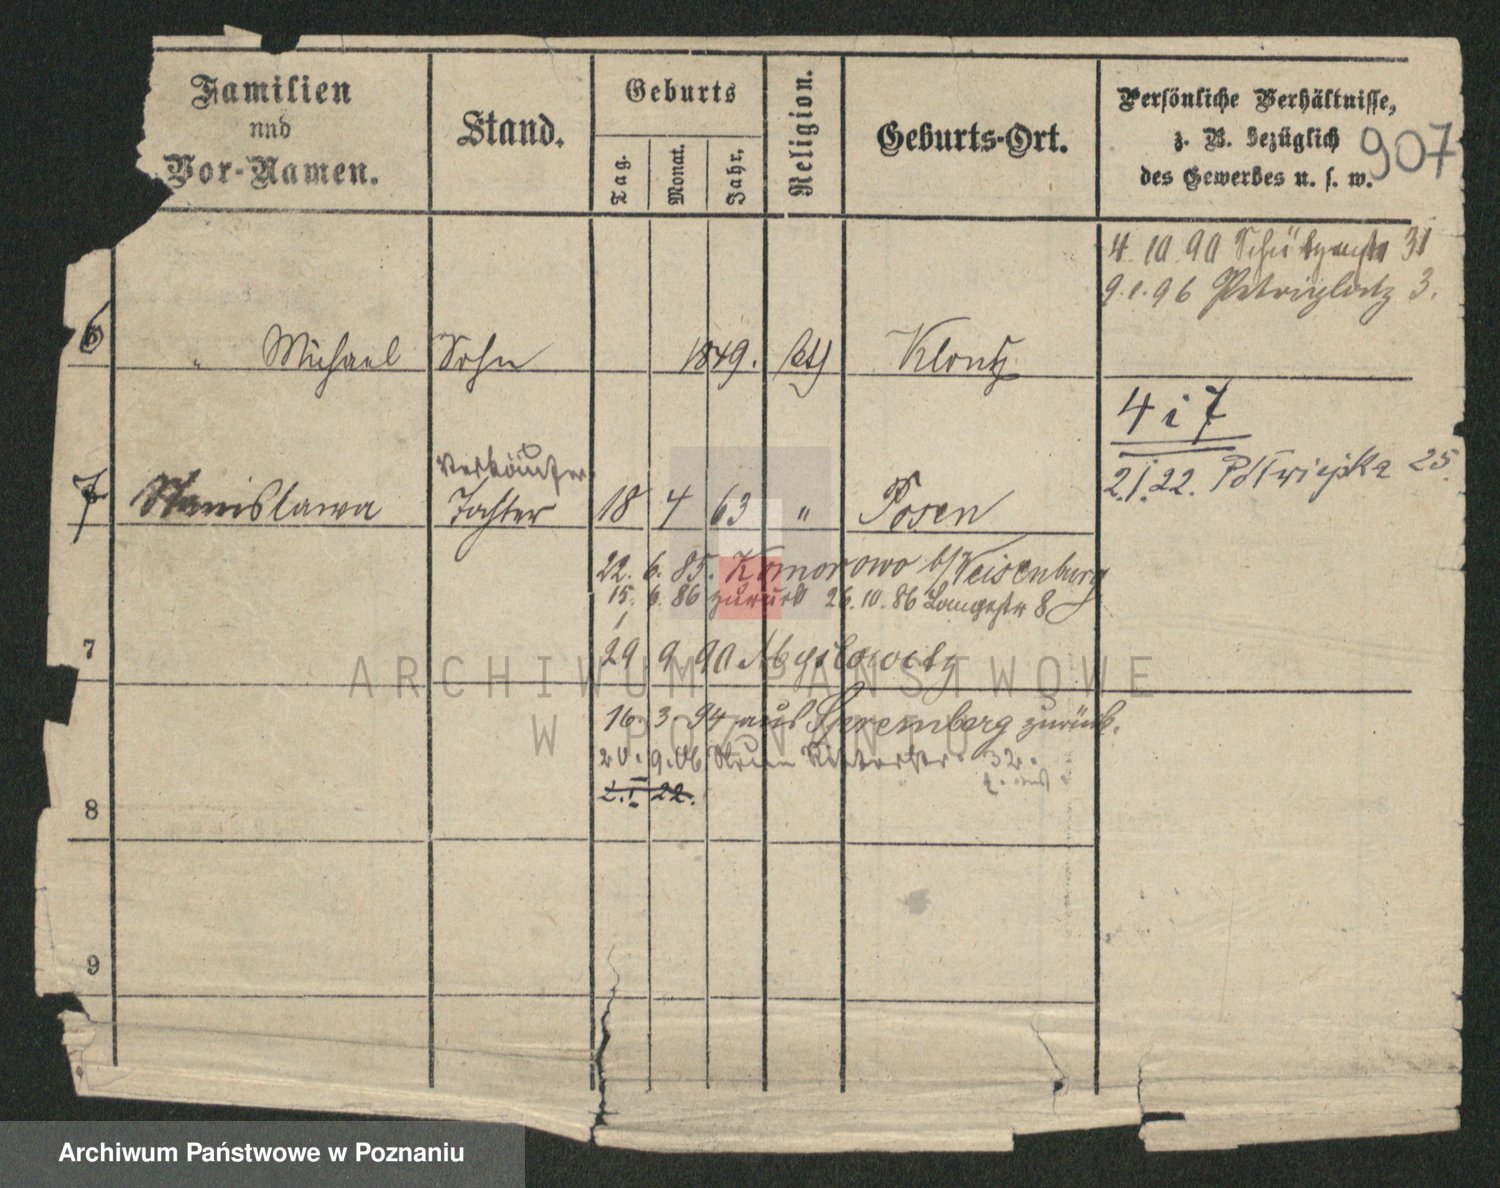 Familien
und
Vor-Namen.
Stand.
Geburts
Tag.
Monat.
Jahr.
Religion.
Geburts-Ort.
Persönliche Verhältnisse,
z. B. bezüglich
des Gewerbes u. s. w.
907
4. 10 90 31
9. 1. 96 Petriplatz 3.
6 " Michael Sohn 1849. kth Klonty
4 i 7
2.I.22. Półwiejska 25
Verkäufer
7 Stanislawa Tochter 18 4 63 " Posen
22. 6. 85. Komorowo b/Weisenburg
15. 6. 86 zurück 26. 10. 86 Langestr 8
7
29 9 90 Myslowitz
16 3 94 aus Spremberg zurück.
20. 9. 06 32.
8
2. I 22.
9
ARCHIWUM PAŃSTWOWE
W POZNANIU
Archiwum Państwowe w Poznaniu